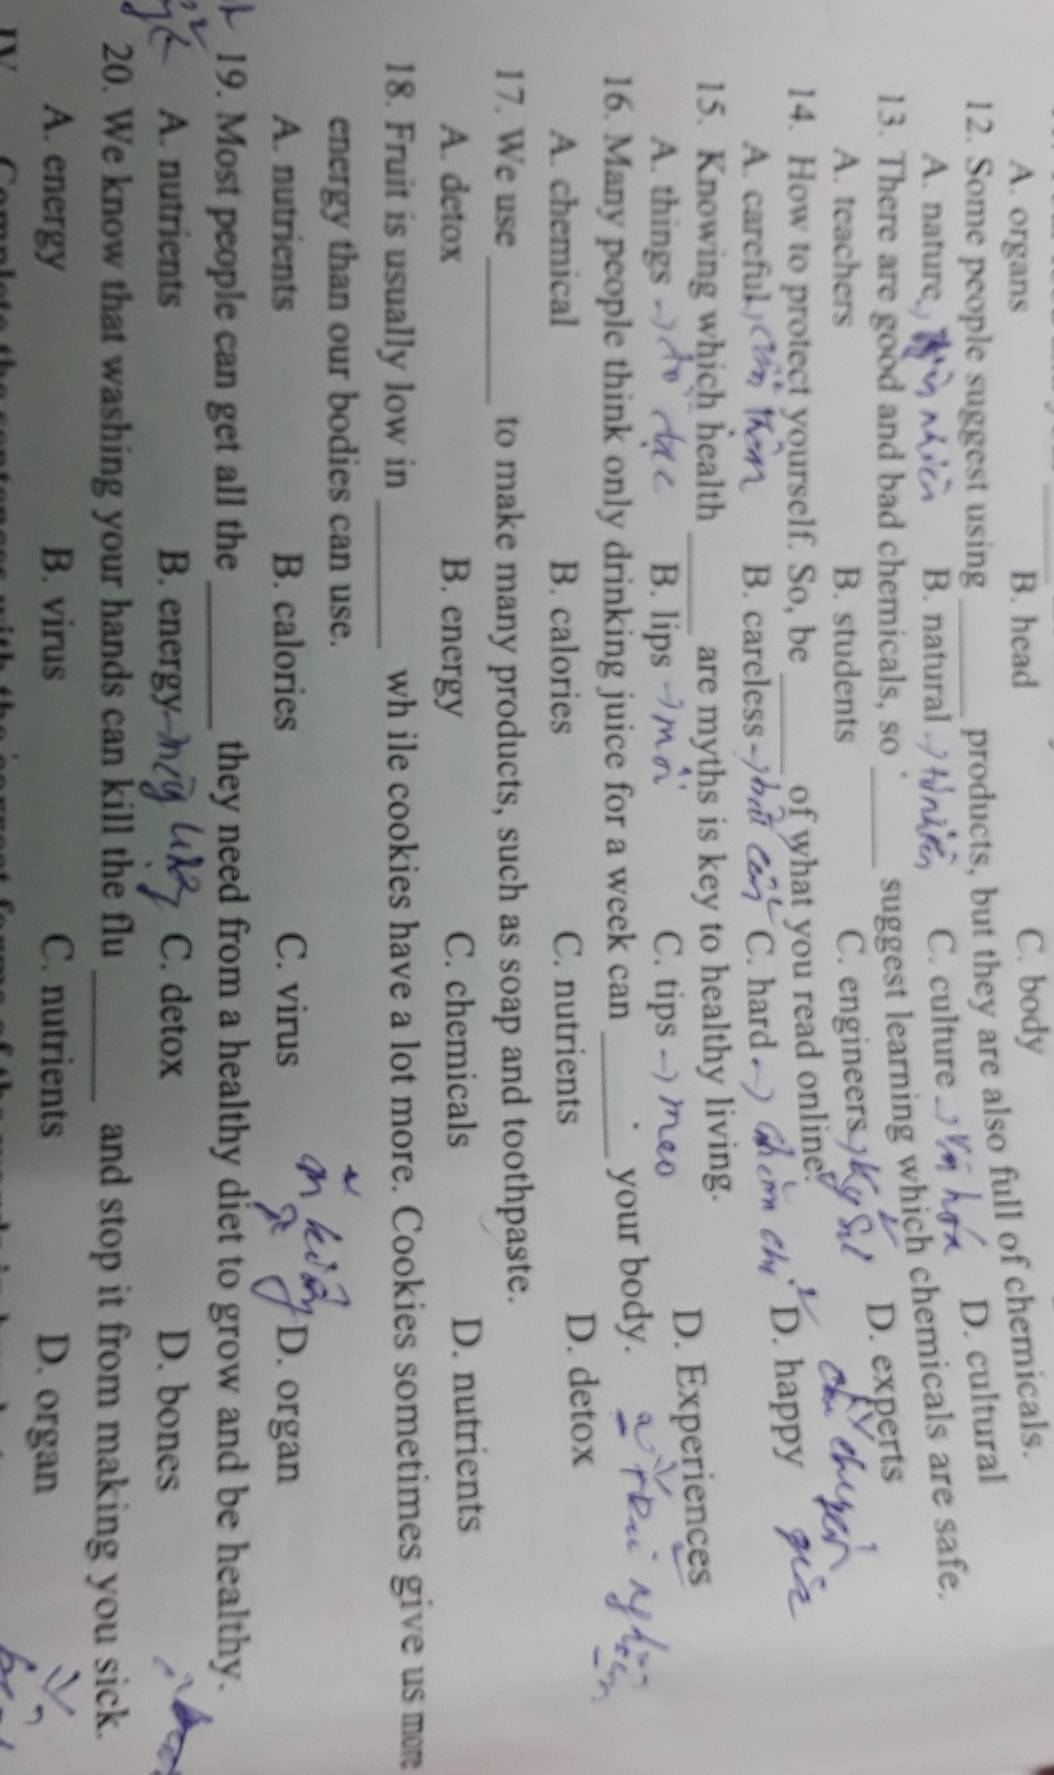 A. organs B. head C. body
12. Some people suggest using ______ products, but they are also full of chemicals.
A. nature → B. natural → tự nhiên C. culture → văn hóa D. cultural
13. There are good and bad chemicals, so ______ suggest learning which chemicals are safe.
A. teachers B. students C. engineers → kỹ sư D. experts
14. How to protect yourself. So, be ______ of what you read online.
A. careful → cẩn thận B. careless → bất cẩn C. hard → chăm chỉ D. happy
15. Knowing which health ______ are myths is key to healthy living.
A. things → đồ đạc B. lips → môi C. tips → mẹo D. Experiences
16. Many people think only drinking juice for a week can ______ your body.
A. chemical B. calories C. nutrients D. detox
17. We use ______ to make many products, such as soap and toothpaste.
A. detox B. energy C. chemicals D. nutrients
18. Fruit is usually low in ______ wh ile cookies have a lot more. Cookies sometimes give us more
energy than our bodies can use.
A. nutrients B. calories C. virus D. organ
19. Most people can get all the ______ they need from a healthy diet to grow and be healthy.
A. nutrients B. energy → C. detox D. bones
20. We know that washing your hands can kill the flu ______ and stop it from making you sick.
A. energy B. virus C. nutrients D. organ
IV